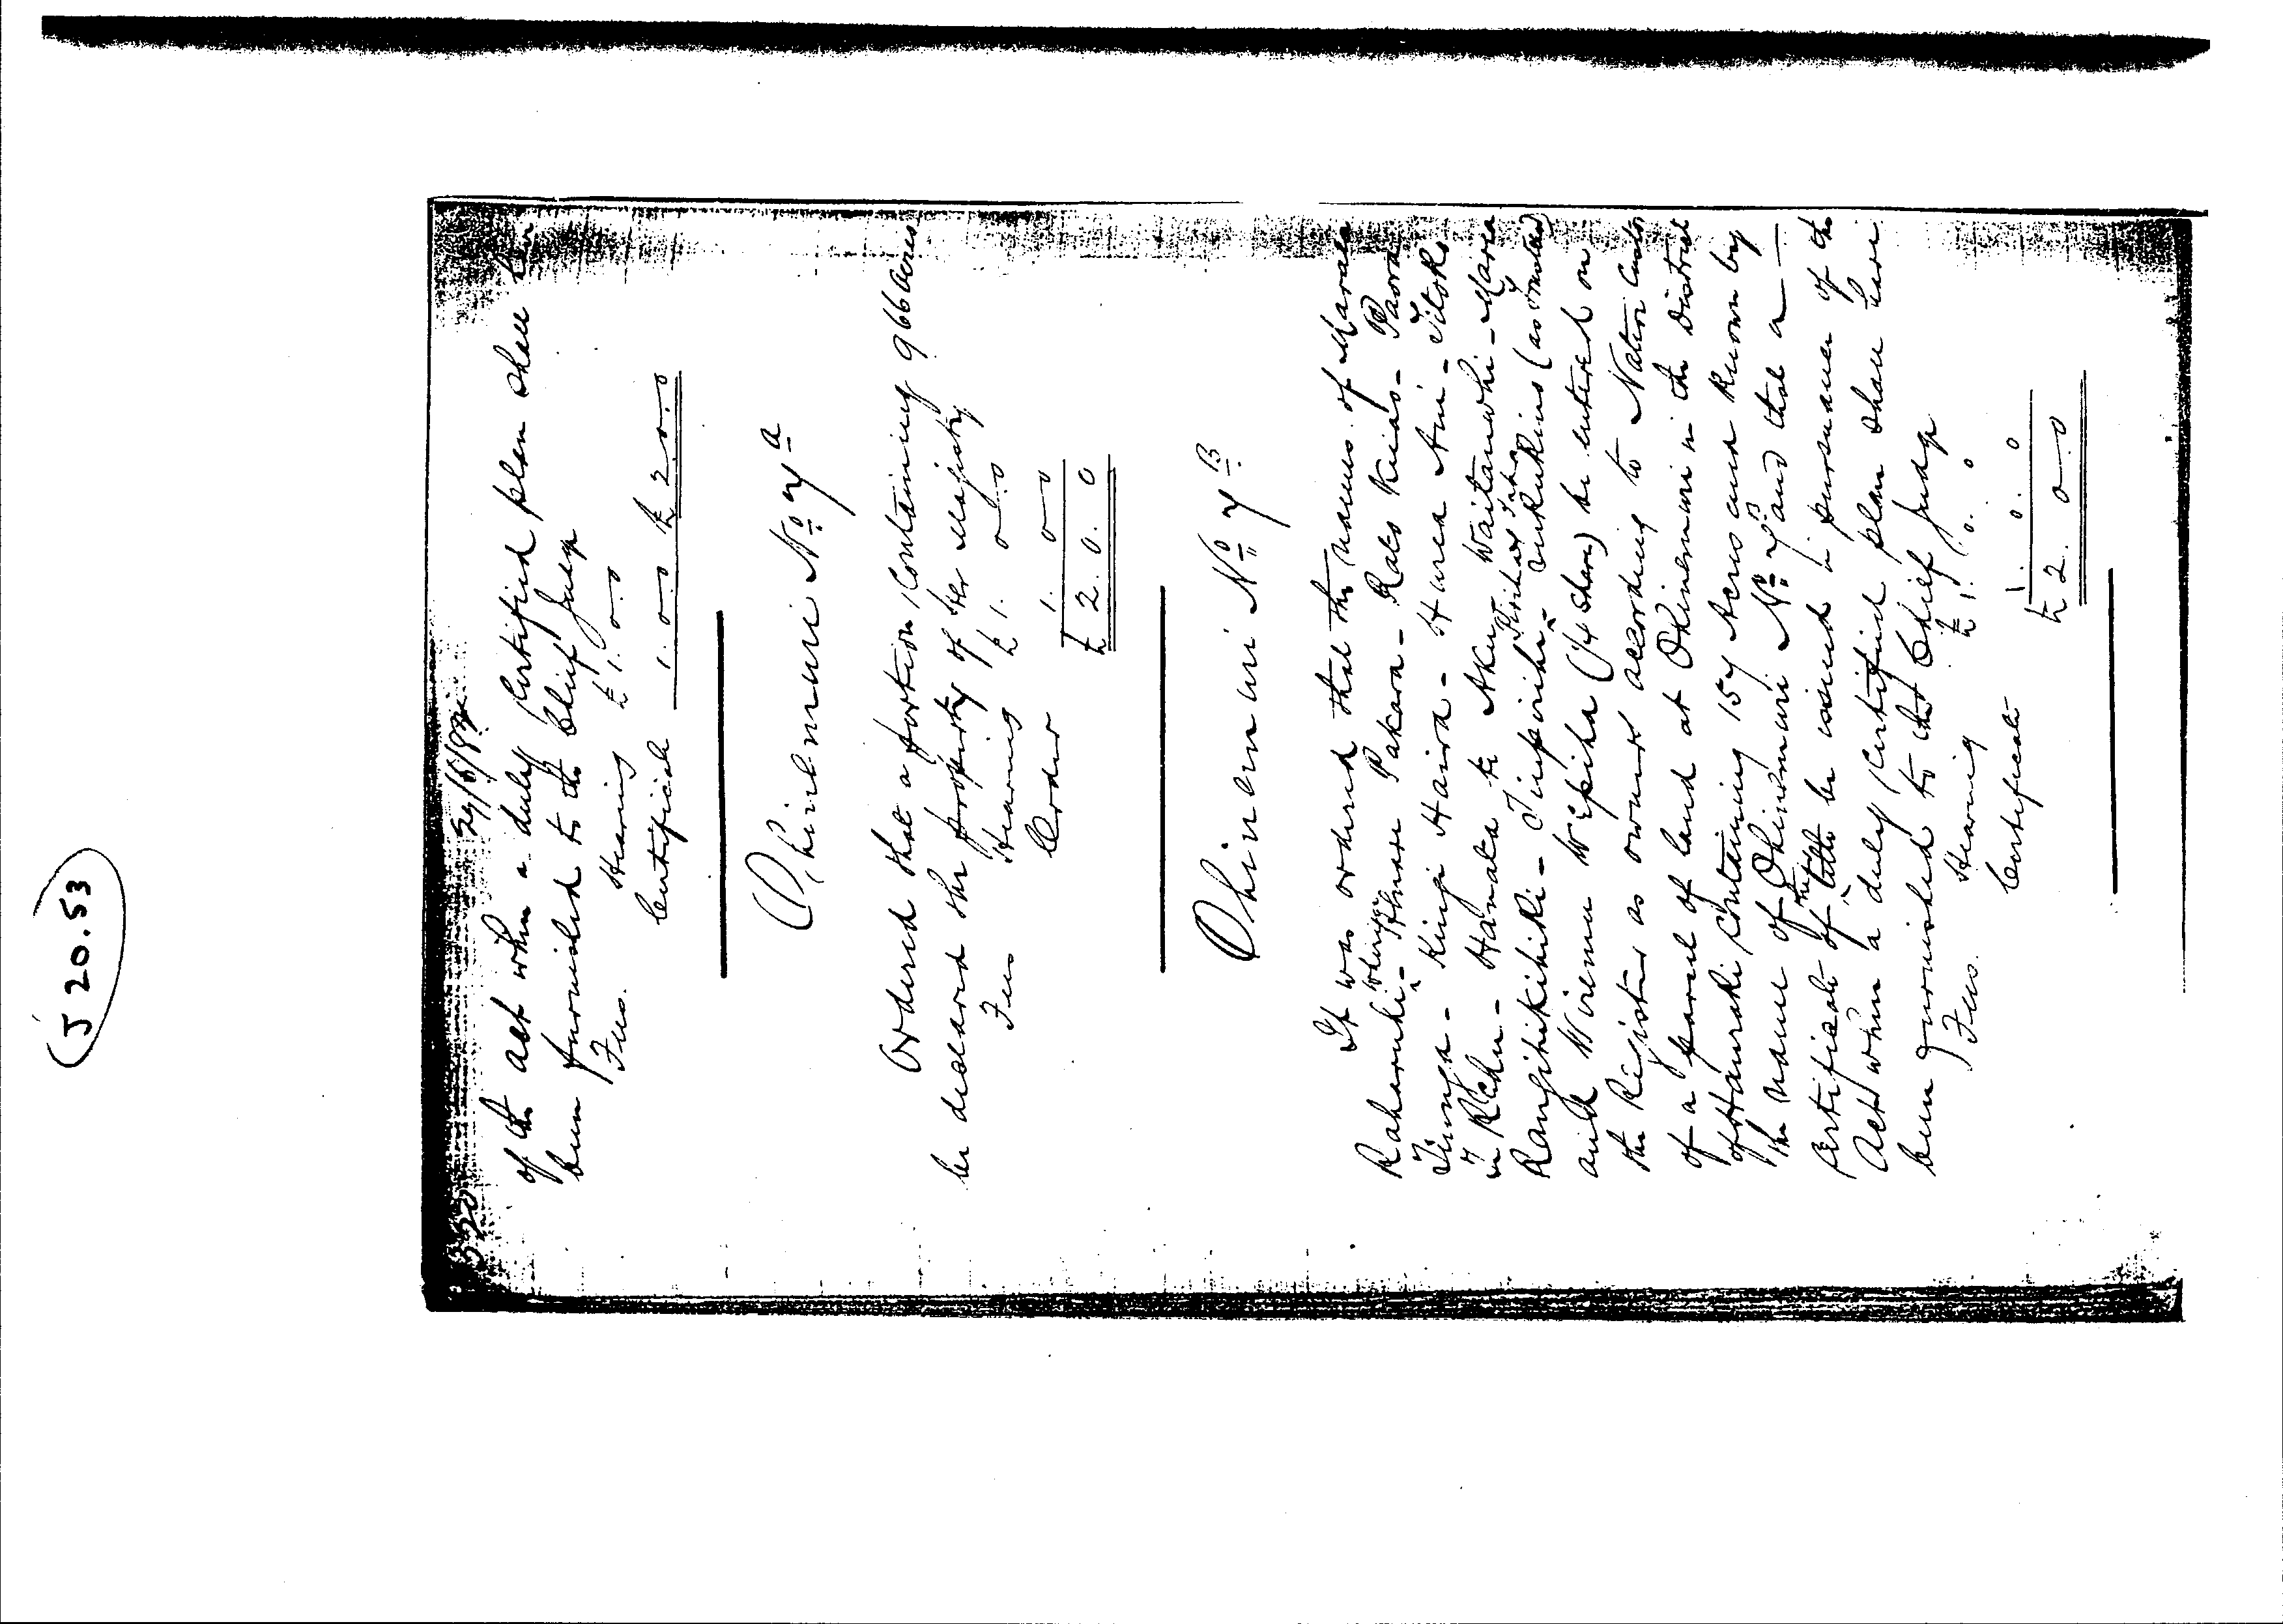 J 20.53
320
29/6/82
of the act when a duly Certified plan shall have
been furnished to the Chief Judge
Fees. Hearing £1.0.0
Certificate 1.0.0 £2.0.0
Ohinemuri No 7 a
Ordered that a portion containing 966 acres
be declared the property of Her Majesty
Fees Hearing £1.0.0
Order 1.0.0
£2.0.0
Ohinemuri No 7 B
It was ordered that the names of Maraea
Pakara - Rato - Paora
Tiunga - Kingi Haira - Hurea Ani - Titoko
Hanata te Aku Waitawhi - Maria
Rangihikihiki - (as Trustee)
and Wiremu Wepiha (1/4 share) be entered on
the Register as owners according to Native Custom
of a parcel of land at Ohinemuri in the District
of Hauraki containing 157 Acres and known by
the name of Ohinemuri No 7 B and that a
Certificate of title be issued in pursuance of the
Act when a duly Certified plan shall have
been furnished to the Chief Judge
Fees. Hearing £1.0.0
Certificate 1.0.0
£2.0.0